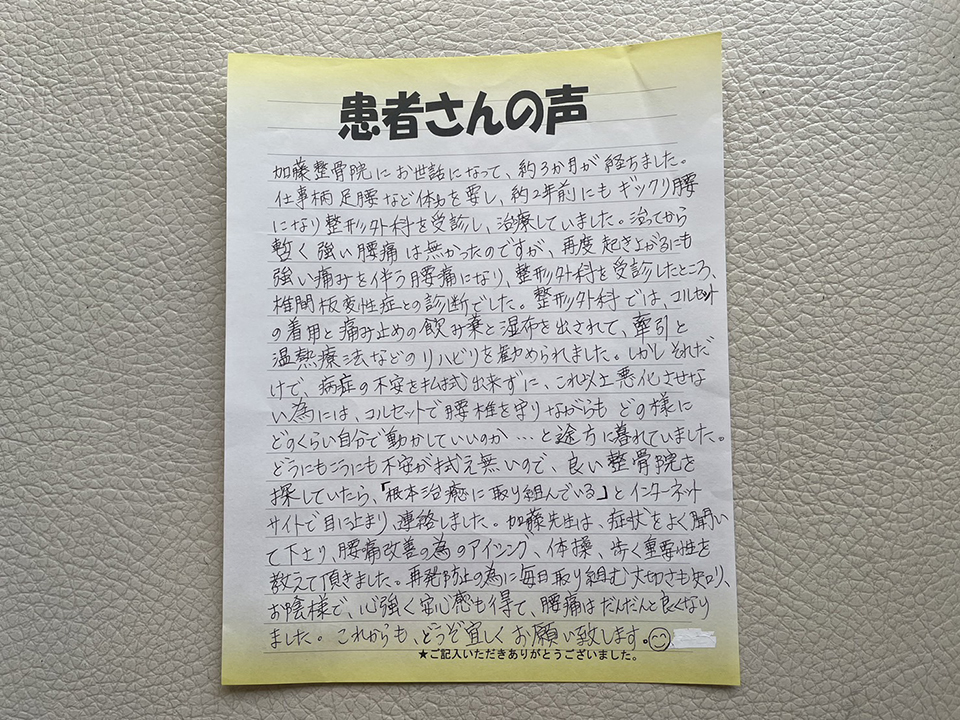 患者さんの声
加藤整骨院にお世話になって、約3か月が経ちました。
仕事柄足腰など体力を要し、約2年前にもギックリ腰
になり整形外科を受診し、治療していました。治ってから
暫く強い腰痛は無かったのですが、再度起き上がるにも
強い痛みを伴う腰痛になり、整形外科を受診したところ、
椎間板変性症との診断でした。整形外科では、コルセット
の着用と痛み止めの飲み薬と湿布を出されて、牽引と
温熱療法などのリハビリを勧められました。しかしそれだ
けで、病症の不安を払拭出来ずに、これ以上悪化させな
い為には、コルセットで腰椎を守りながらもどの様に
どのくらい自分で動かしていいのか…と途方に暮れていました。
どうにもこうにも不安が拭え無いので、良い整骨院を
探していたら、「根本治癒に取り組んでいる」とインターネット
サイトで目に止まり、連絡しました。加藤先生は、症状をよく聞い
て下さり、腰痛改善の為のアイシング、体操、歩く重要性を
教えて頂きました。再発防止の為に毎日取り組む大切さも知り、
お陰様で、心強く安心感も得て、腰痛はだんだんと良くなり
ました。これからも、どうぞ宜しくお願い致します。
★ご記入いただきありがとうございました。